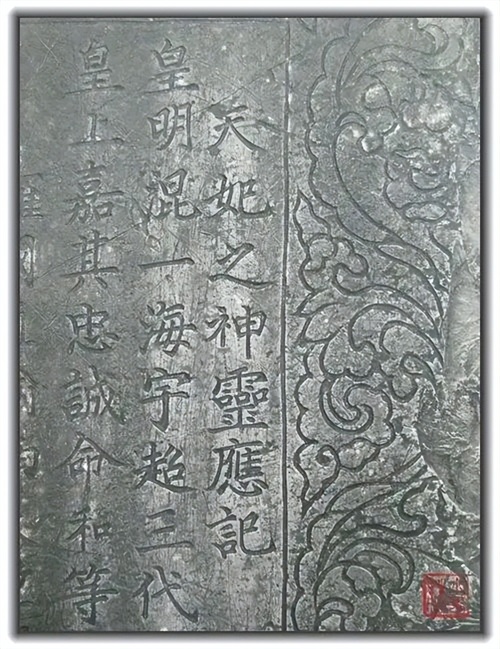 天妃之神靈應記
皇明混一海宇超三代
皇上嘉其忠誠命和等